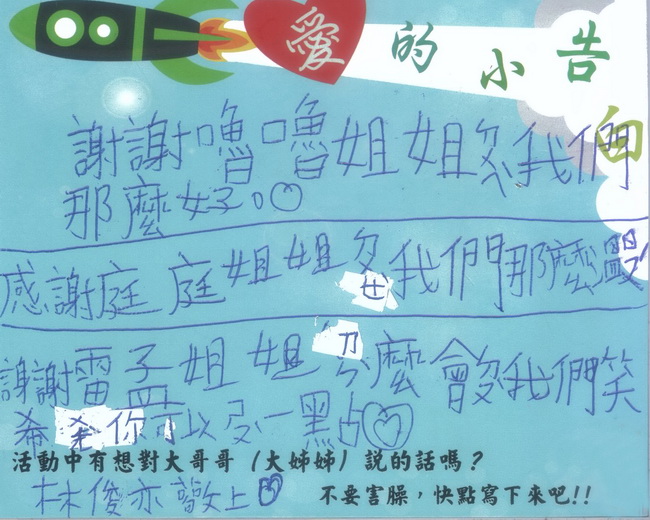 愛的小告白
謝謝嚕嚕姐姐我們
那麼好。
感謝庭庭姐姐我們那麼
謝謝雷孟姐姐麼會我們笑
希你可以一點
活動中有想對大哥哥（大姊姊）說的話嗎？
林俊亦敬上
不要害臊，快點寫下來吧!!